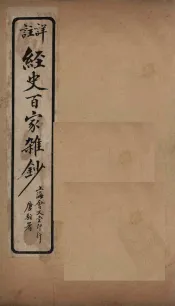 詳註
經史百家雜鈔
上海會文堂印行
唐駝署